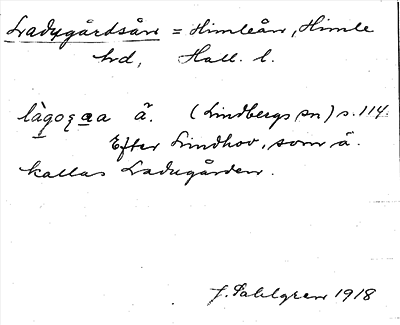 Ladugårdsån = Himleån, Himle
hrd, Hall. l.
làgoꝛa̲a ä. (Lindbergs sn) s. 114.
Efter Lindhov, som ä.
kallas Ladugården.
J. Sahlgren 1918